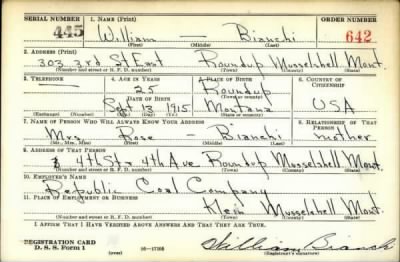 SERIAL NUMBER 1. NAME (Print) ORDER NUMBER
445 William — Bianchi 642
(First) (Middle) (Last)
2. ADDRESS (Print)
303 3rd St East Roundup Musselshell Mont.
(Number and street or R. F. D. number) (Town) (County) (State)
3. TELEPHONE 4. AGE IN YEARS 5. PLACE OF BIRTH 6. COUNTRY OF CITIZENSHIP
— 25 Roundup
DATE OF BIRTH (Town or county)
Sept 13 1915 Montana USA
(Exchange) (Number) (Mo.) (Day) (Yr.) (State or country)
7. NAME OF PERSON WHO WILL ALWAYS KNOW YOUR ADDRESS 8. RELATIONSHIP OF THAT PERSON
Mrs Rose — Bianchi Mother
(Mr., Mrs., Miss) (First) (Middle) (Last)
9. ADDRESS OF THAT PERSON
4th St & 4th Ave Roundup Musselshell Mont.
(Number and street or R. F. D. number) (Town) (County) (State)
10. EMPLOYER'S NAME
Republic Coal Company
11. PLACE OF EMPLOYMENT OR BUSINESS
Klein Musselshell Mont.
(Number and street or R. F. D. number) (Town) (County) (State)
I AFFIRM THAT I HAVE VERIFIED ABOVE ANSWERS AND THAT THEY ARE TRUE.
REGISTRATION CARD
D. S. S. Form 1 (over) 16—17105 William Bianchi